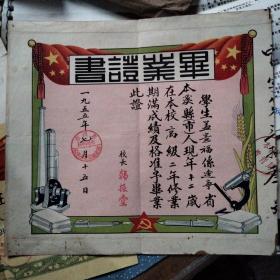 畢業證書
學生姜嘉福係遼寧省
本溪縣市人現年十二歲
在本校高級二年修業
期滿成績及格准予畢業
此證
校長
一九五五年 月十五日